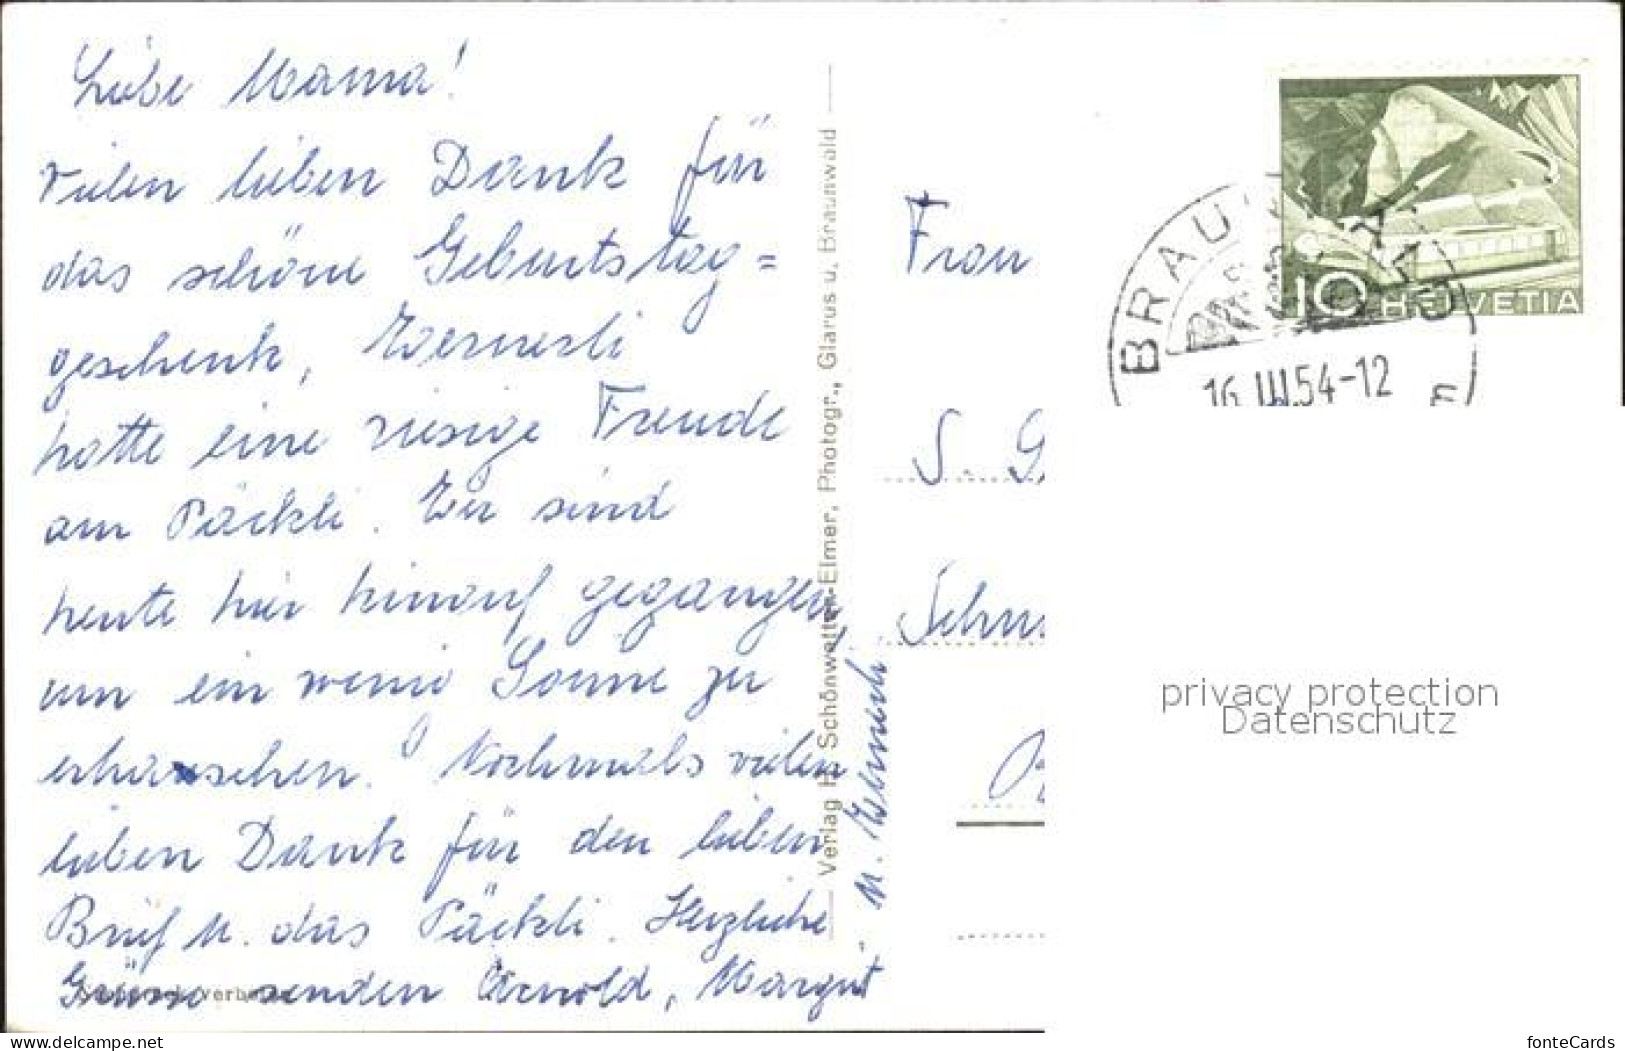 Liebe Mama!
Vielen lieben Dank für
das schöne Geburtstag=
geschenk, Wernerli
hatte eine riesige Freude
am Päckli. Wir sind
heute hier hinauf gegangen,
um ein wenig Sonne zu
erhaschen. Nochmals vielen
lieben Dank für den lieben
Brief u. das Päckli. Herzliche
Grüsse senden Arnold, Margrit
u. Wernerli
Verlag H. Schönwetter-Elmer, Photogr., Glarus u. Braunwald
Frau
S. G
Schn
BRAUNWALD
16.III.54-12
10 HELVETIA
privacy protection
Datenschutz
www.delcampe.net
fonteCards